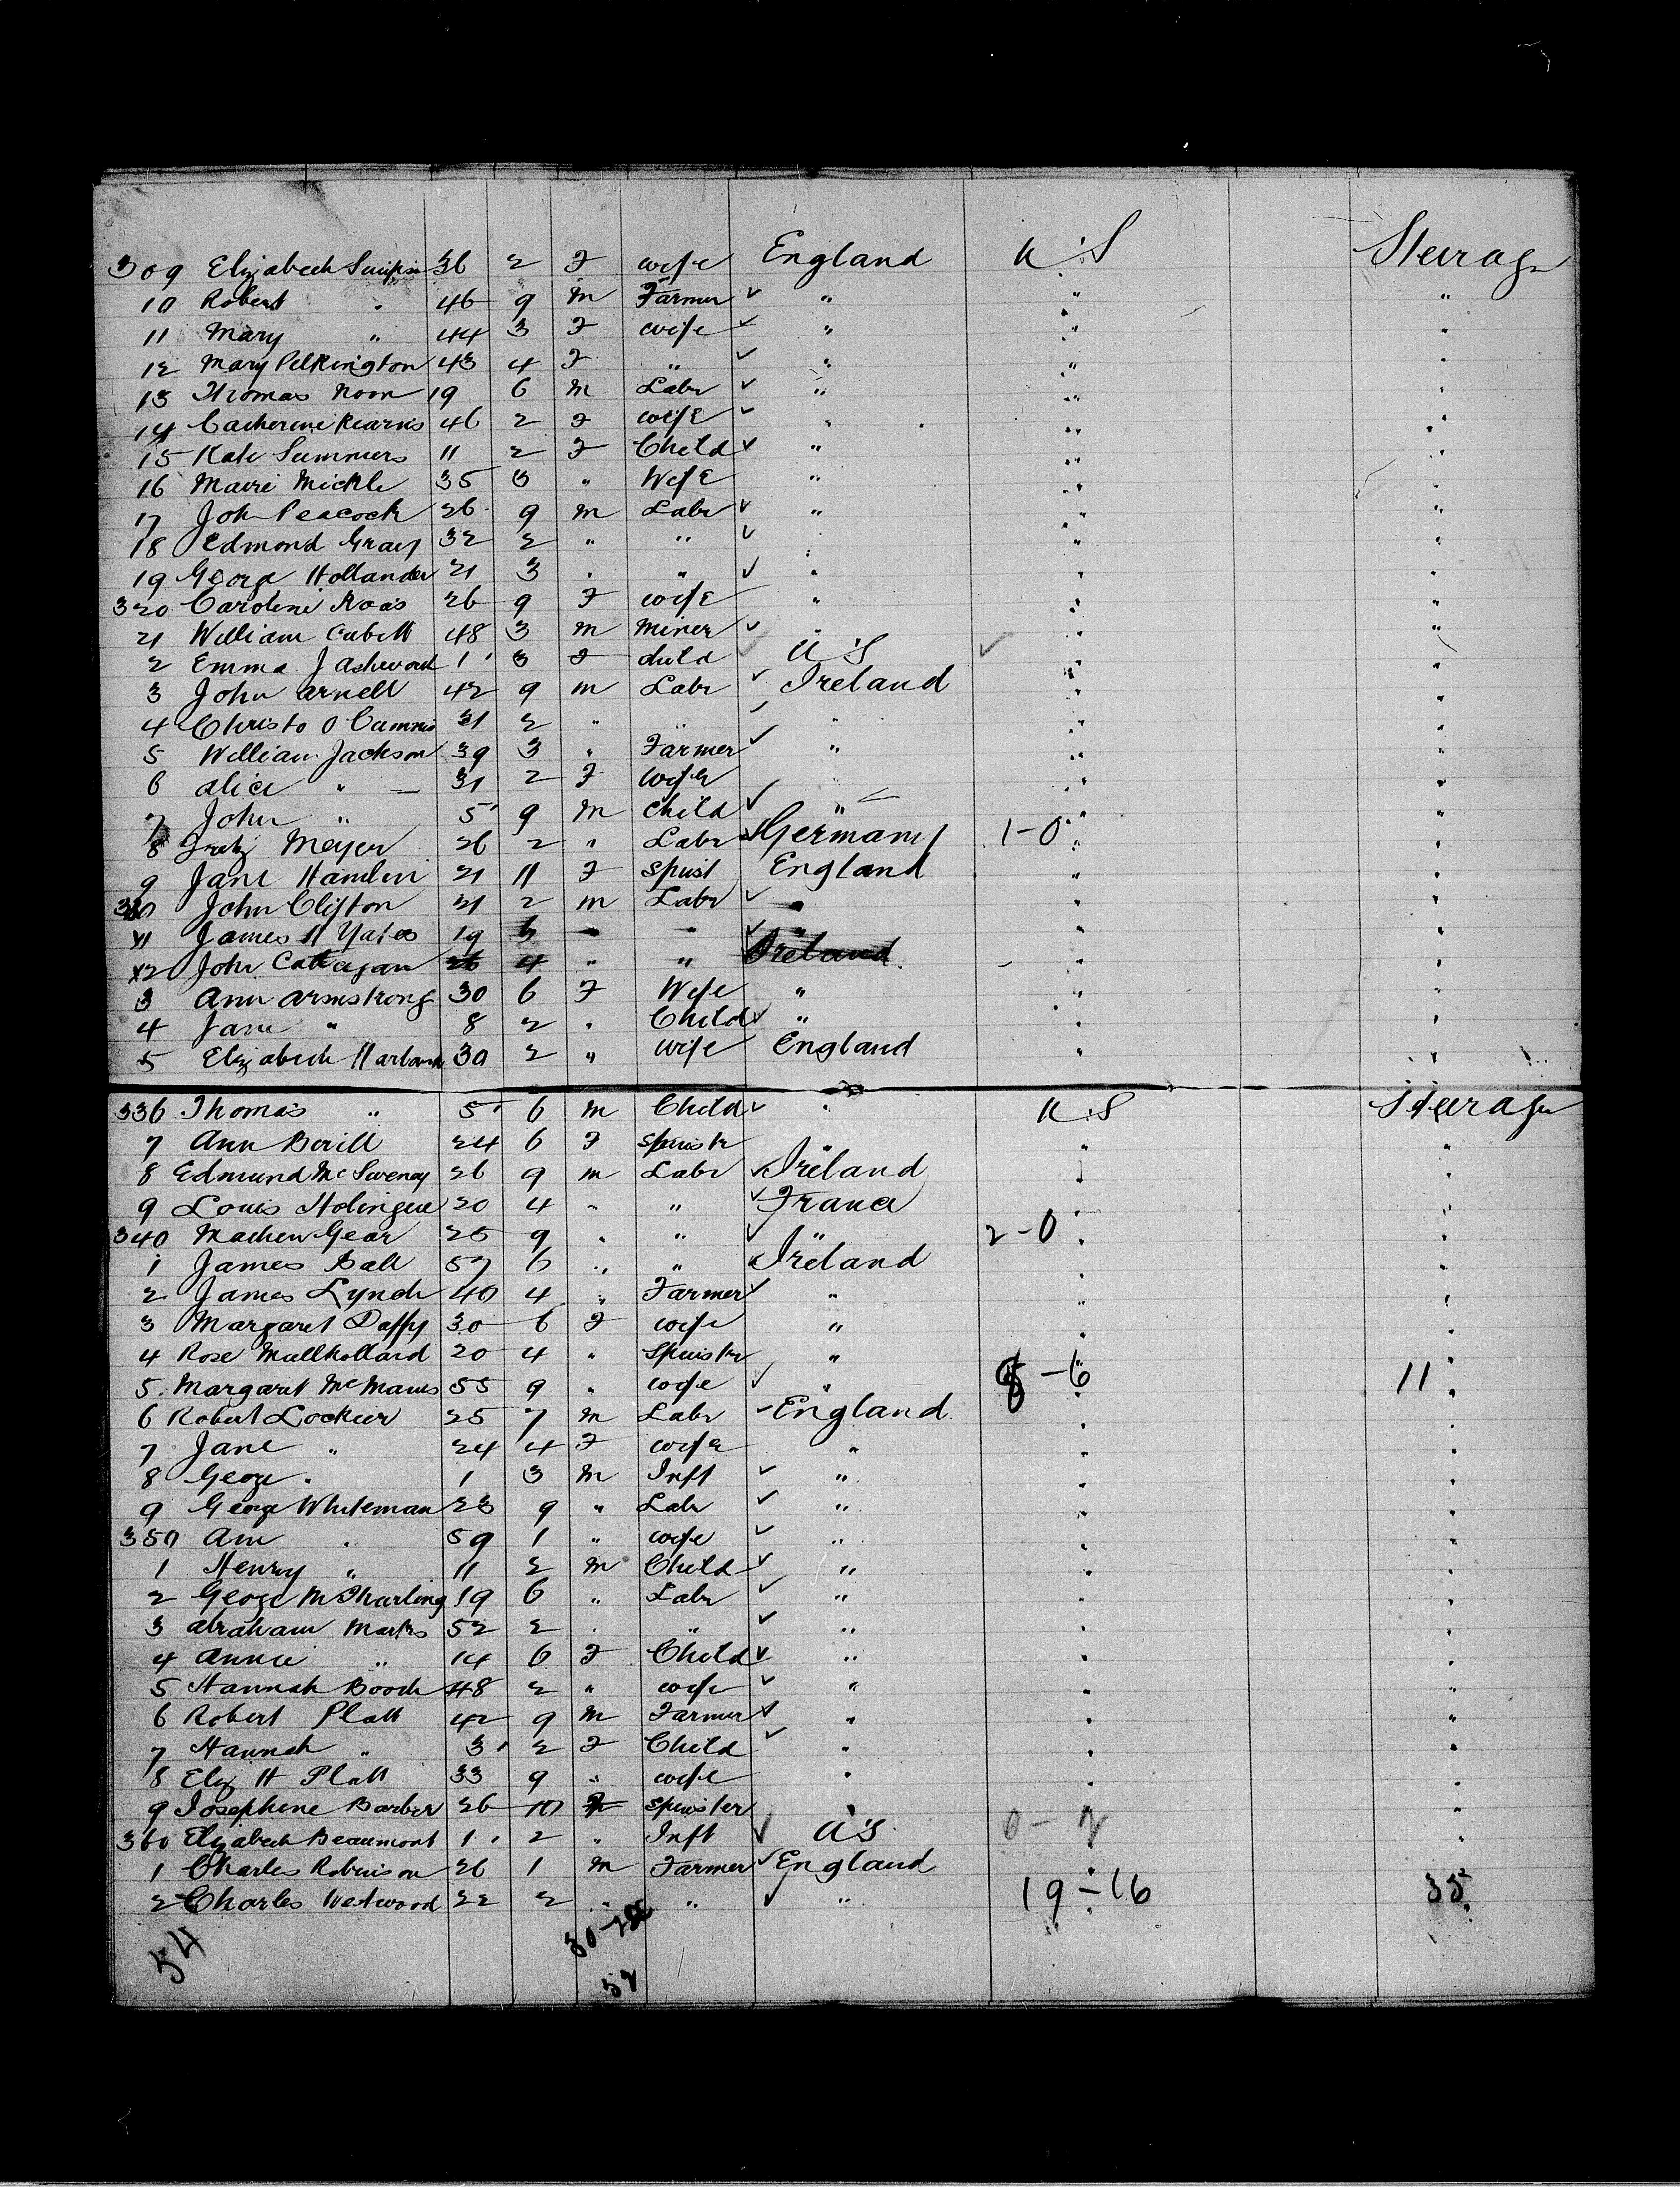 309 Elizabeth Simpson 36 2 F wife England U.S Steerage
10 Robert " 46 9 m Farmer ✓ " " "
11 Mary " 44 3 F wife ✓ " " "
12 Mary Pelkington 43 4 F " ✓ " " "
13 Thomas Noon 19 6 m Labr ✓ " " "
14 Catherine Kearns 46 2 F wife ✓ " " "
15 Kate Summers 11 2 F Child ✓ " " "
16 Marie Mickle 35 3 " Wife " " "
17 Joh Peacock 26 9 m Labr ✓ " " "
18 Edmond Gray 32 2 " " ✓ " " "
19 George Hollander 21 3 " " ✓ " " "
320 Caroline 26 9 F wife " " "
21 William Cubitt 48 3 m miner ✓ " " "
2 Emma J Ashword 1 3 F child ✓ U S ✓ " "
3 John Arnell 42 9 m Labr ✓ Ireland " "
4 Christo O 31 2 " " ✓ " " "
5 William Jackson 39 3 " Farmer ✓ " " "
6 Alice " 31 2 F wife " "
7 John " 5 9 m Child ✓ " " "
8 Meyer 26 2 " Labr Germany 1-0 " "
9 Jane Hamlin 21 11 F Spist England " "
330 John Clifton 21 2 m Labr ✓ " " "
x1 James H Yates 19 3 " " ✓ " " "
x2 John 26 4 " " Ireland " "
3 Ann Armstrong 30 6 F Wife " " "
4 Jane " 8 2 " Child ✓ " " "
5 Elizabeth 30 2 " wife England " "
336 Thomas " 5 6 m Child ✓ " U.S Steerage
7 Ann Berill 24 6 F Spinstr " " "
8 Edmund McSweney 26 9 m Labr ✓ Ireland " "
9 Louis Holingue 20 4 " " ✓ France " "
340 Mathew Gear 25 9 " " ✓ " 2-0 " "
1 James Ball 57 6 " " Ireland " "
2 James Lynch 40 4 " Farmer ✓ " " "
3 Margaret Daffy 30 6 F wife " " "
4 Rose Mullhollard 20 4 " Spinstr " " "
5. Margaret McManus 55 9 " wife ✓ " 8-6 11 "
6 Robert Lockier 25 7 m Labr ✓ England " "
7 Jane " 24 4 F wife " " "
8 George " 1 3 m Inft ✓ " " "
9 George Whiteman 23 9 " Labr ✓ " " "
350 Ann " 59 1 " wife ✓ " " "
1 Henry " 11 2 m Child ✓ " " "
2 George 19 6 " Labr ✓ " " "
3 Abraham Marks 52 2 " " ✓ " " "
4 Annie " 14 6 F Child ✓ " " "
5 Hannah Booth 48 2 " wife ✓ " " "
6 Robert Platt 42 9 m Farmer ✓ " " "
7 Hannah " 3 2 F Child ✓ " " "
8 Eliz H Platt 33 9 " wife " " "
9 Josephine Barber 26 10 F Spinster " " "
360 Elizabeth Beaumont 1 2 " Inft ✓ U S 0-2 "
1 Charles Robinson 26 1 m Farmer ✓ England " "
2 Charles Westwood 22 2 " " ✓ " 19-16 35
54